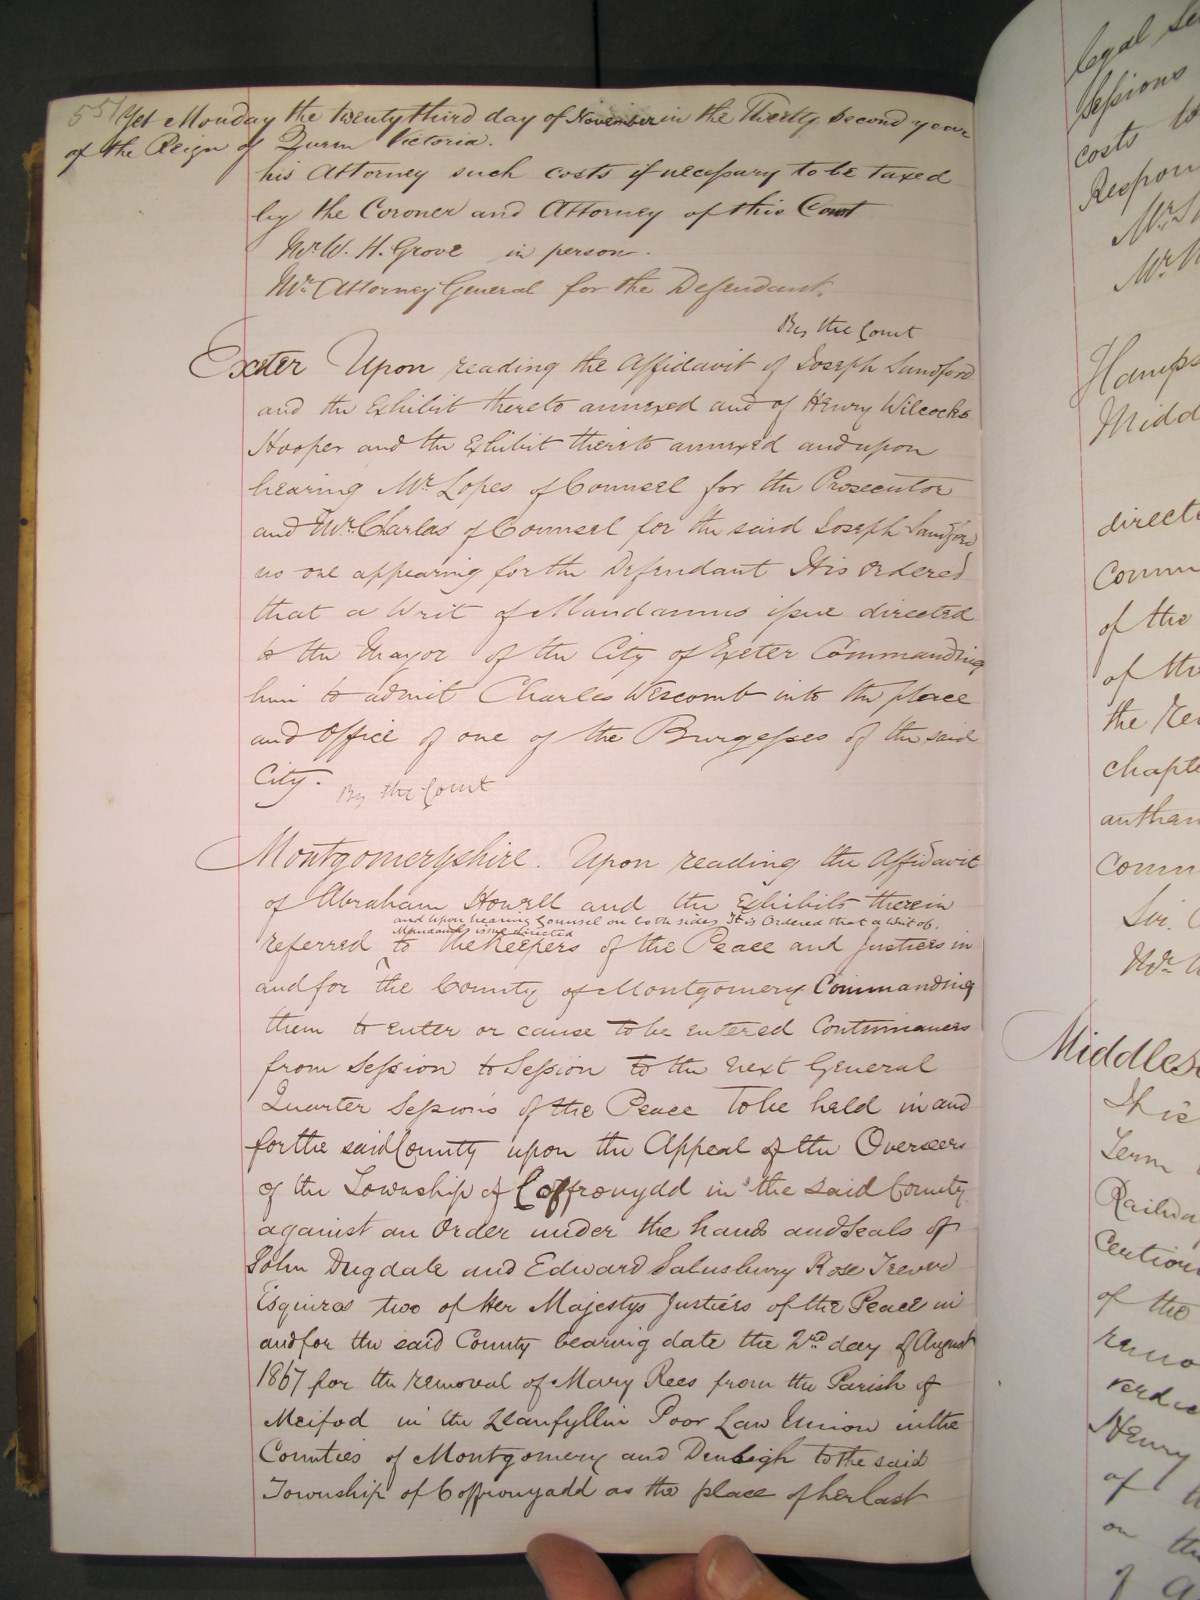 551 Yet Monday the twenty third day of November in the Thirty second year
of the Reign of Queen Victoria.
his Attorney such costs if necessary to be taxed
by the Coroner and Attorney of this Court
Mr W. H. Grove in person.
Mr Attorney General for the Defendant.
By the Court
Exeter Upon reading the Affidavit of Joseph Sandford
and the Exhibit thereto annexed and of Henry Wilcocks
Hooper and the Exhibit thereto annexed and upon
hearing Mr Lopes of Counsel for the Prosecutor
and Mr Charles of Counsel for the said Joseph Sandford
no one appearing for the Defendant It is Ordered
that a Writ of Mandamus issue directed
to the Mayor of the City of Exeter Commanding
him to admit Charles Wescomb into the place
and Office of one of the Burgesses of the said
City.
By the Court
Montgomeryshire. Upon reading the Affidavit
of Abraham Howell and the Exhibits therein
and upon hearing Counsel on both sides It is Ordered that a Writ of
Mandamus issue directed
referred to the Keepers of the Peace and Justices in
and for the County of Montgomery Commanding
them to enter or cause to be entered Continuances
from Session to Session to the next General
Quarter Sessions of the Peace to be held in and
for the said County upon the Appeal of the Overseers
of the Township of Coffronydd in the said County
against an Order under the hands and Seals of
John Dugdale and Edward Salusbury Rose Trevor
Esquires two of Her Majestys Justices of the Peace in
and for the said County bearing date the 2nd day of August
1867 for the removal of Mary Rees from the Parish of
Meifod in the Llanfyllin Poor Law Union in the
Counties of Montgomery and Denbigh to the said
Township of Coffronyadd as the place of her last
legal
Sessions
costs to
Mr
Mr
directe
Comm
of the
of the
the
chapte
Comm
Mr
Middles
It is
Term
Railwa
of the
Henry
of
on the
of